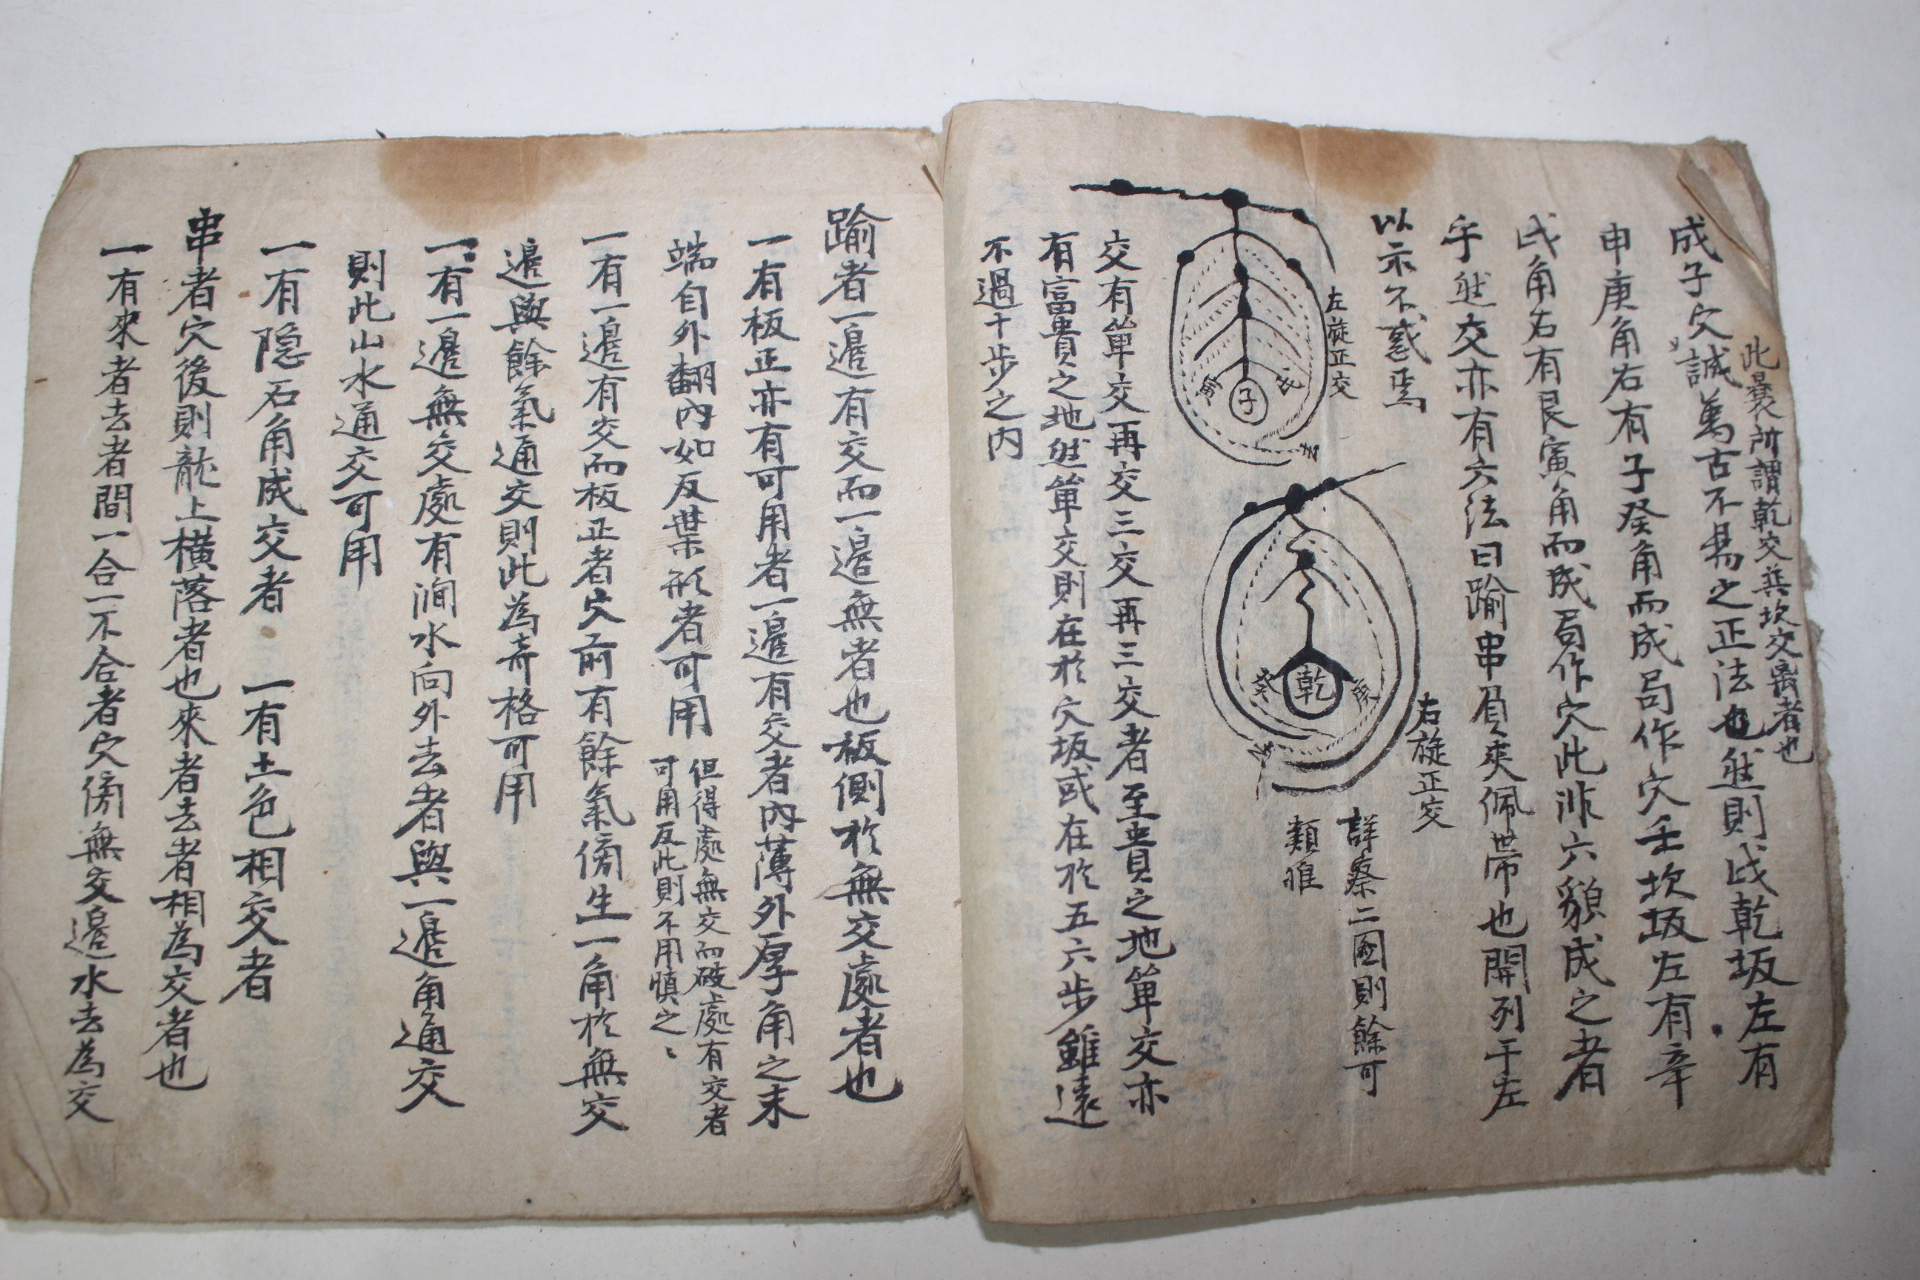 成子穴誠萬古不易之正法也然則戌乾坂左有
此曩所謂乾交兼坎交离者也
申庚角右有子癸角而成局作穴壬坎坂左有辛
戌角右有艮寅角而成局作穴此非六貌成之者
乎然交亦有六法曰踰串負夾佩帶也開列于左
以示不惑焉
左旋正交
子
右旋正交
乾
癸
詳察二圖則餘可
類推
交有單交再交三交再三交者至貴之地單交亦
有富貴之地然單交則在於穴坂或在於五六步雖遠
不過十步之内
踰者一邊有交而一邊無者也板側於無交處者也
一有板正亦有可用者一邊有交者內薄外厚角之末
端自外翻內如反葉形者可用
但得處無交而破處有交者
可用反此則不用愼之〻
一有一邊有交而板正者穴前有餘氣傍生一角於無交
邊與餘氣通交則此為奇格可用
一有一邊無交處有澗水向外去者與一邊角通交
則此山水通交可用
一有隐石角成交者 一有土色相交者
串者穴後則龍上橫落者也來者去者相為交者也
一有來者去者間一合一不合者穴傍無交邊水去為交